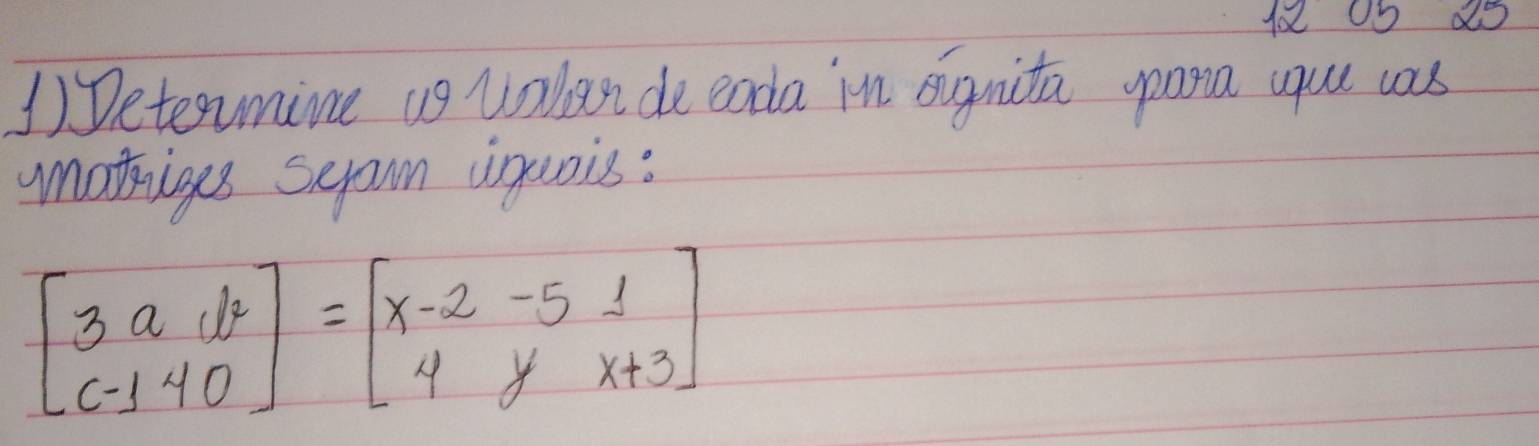 12 05 25
1) Determine o valor de cada in ógnita para que as
matrizes sejam iguais:
[3 a b] = [x-2 -5 1]
[c-1 4 0] [4 y x+3]